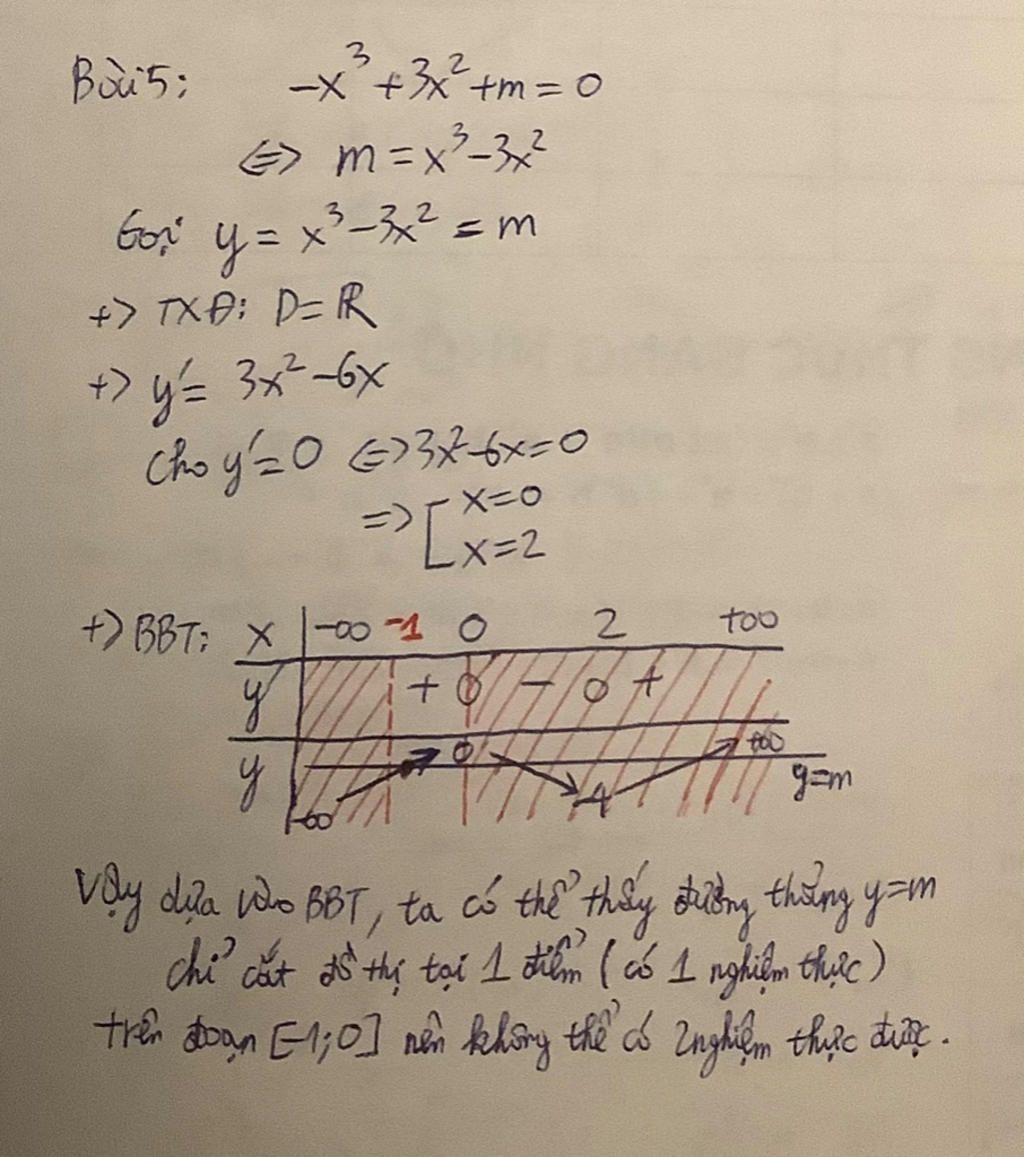 Bài 5: -x³ + 3x² + m = 0
<=> m = x³ - 3x²
Gọi y = x³ - 3x² = m
+> TXĐ: D = ℝ
+> y' = 3x² - 6x
Cho y' = 0 <=> 3x² - 6x = 0
=> [ x = 0
x = 2
+> BBT: x | -∞ -1 0 2 +∞
y' + 0 - 0 +
y 0 +∞
-∞ -4 y=m
Vậy dựa vào BBT, ta có thể thấy đường thẳng y=m
chỉ cắt đồ thị tại 1 điểm (có 1 nghiệm thực)
trên đoạn [-1;0] nên không thể có 2 nghiệm thực được.